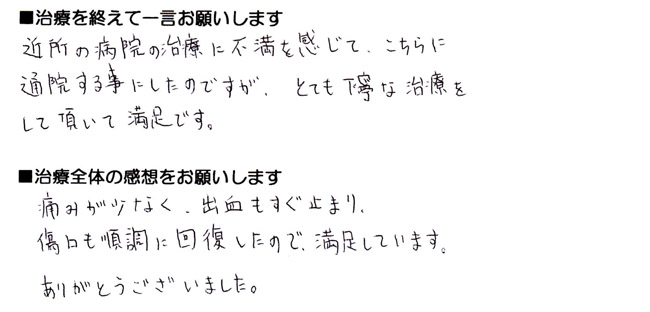 ■治療を終えて一言お願いします
近所の病院の治療に不満を感じて、こちらに
通院する事にしたのですが、とても丁寧な治療を
して頂いて満足です。
■治療全体の感想をお願いします
痛みが少なく、出血もすぐ止まり、
傷口も順調に回復したので、満足しています。
ありがとうございました。